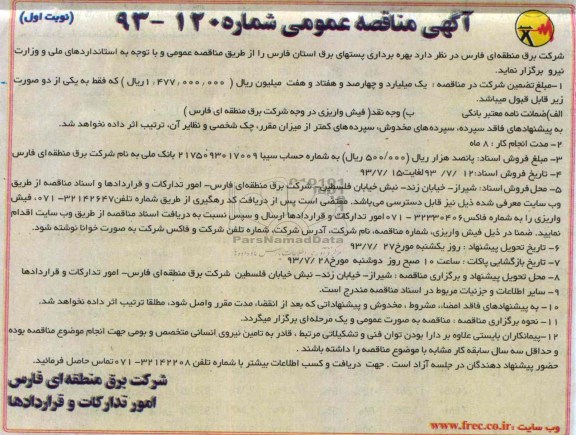 (نوبت اول)
آگهی مناقصه عمومی شماره ۱۲۰ -۹۳
شرکت برق منطقه‌ای فارس در نظر دارد بهره برداری پستهای برق استان فارس را از طریق مناقصه عمومی و با توجه به استانداردهای ملی و وزارت
نیرو برگزار نماید.
۱-مبلغ تضمین شرکت در مناقصه : یک میلیارد و چهارصد و هفتاد و هفت میلیون ریال ( ۱,۴۷۷,۰۰۰,۰۰۰ریال ) که فقط به یکی از دو صورت
زیر قابل قبول میباشد.
الف)ضمانت نامه معتبر بانکی ب) وجه نقد( فیش واریزی در وجه شرکت برق منطقه ای فارس )
به پیشنهادهای فاقد سپرده، سپرده‌های مخدوش، سپرده‌های کمتر از میزان مقرر، چک شخصی و نظایر آن، ترتیب اثر داده نخواهد شد.
۲- مدت انجام کار : ۸ ماه
۳- مبلغ فروش اسناد: پانصد هزار ریال (۵۰۰/۰۰۰ ریال) به شماره حساب سیبا ۲۱۷۵۰۹۳۰۱۷۰۰۹ بانک ملی به نام شرکت برق منطقه‌ای فارس
۴- تاریخ فروش اسناد: ۱۲ /۹۳/۷ لغایت۹۳/۷/۱۵
۵- محل‌فروش اسناد: شیراز- خیابان زند- نبش خیابان فلسطین- شرکت برق منطقه‌ای فارس- امور تدارکات و قراردادها و اسناد مناقصه از طریق
وب سایت معرفی شده ذیل نیز قابل دسترسی می‌باشد. مقتضی است پس از دریافت کد رهگیری از طریق شماره تلفن۳۲۱۴۲۶۴۷-۰۷۱، فیش
واریزی را به شماره فاکس۳۲۲۳۰۴۰۶-۰۷۱ امور تدارکات و قراردادها ارسال و سپس نسبت به دریافت اسناد مناقصه از طریق وب سایت اقدام
نمایید. ضمنا در ذیل فیش واریزی، شماره مناقصه، نام شرکت، آدرس شرکت، شماره تلفن شرکت و فاکس شرکت به صورت خوانا نوشته شود.
۶- تاریخ تحویل پیشنهاد : روز یکشنبه مورخ۲۷ /۹۳/۷
۷- تاریخ بازگشایی پاکات : ساعت ۱۰ صبح روز دوشنبه مورخ۲۸ /۹۳/۷
۸- محل تحویل پیشنهاد و برگزاری مناقصه : شیراز- خیابان زند- نبش خیابان فلسطین شرکت برق منطقه‌ای فارس- امور تدارکات و قراردادها
۹- سایر اطلاعات و جزئیات مربوط در اسناد مناقصه مندرج است.
۱۰- به پیشنهادهای فاقد امضاء، مشروط ، مخدوش و پیشنهاداتی که بعد از انقضاء مدت مقرر واصل شود، مطلقا ترتیب اثر داده نخواهد شد.
۱۱- نحوه برگزاری مناقصه : مناقصه به صورت عمومی و یک مرحله‌ای برگزار میگردد.
۱۲-پیمانکاران بایستی علاوه بر دارا بودن توان فنی و تشکیلاتی مرتبط ، قادر به تامین نیروی انسانی متخصص و بومی جهت انجام موضوع مناقصه بوده
و حداقل سه سال سابقه کار مشابه با موضوع مناقصه را داشته باشند .
حضور پیشنهاد دهندگان در جلسه آزاد است . جهت دریافت و کسب اطلاعات بیشتر با شماره تلفن ۳۲۱۴۲۲۰۸-۰۷۱تماس حاصل فرمائید.
شرکت برق منطقه ای فارس
امور تدارکات و قراردادها
وب سایت :www.frec.co.ir
ParsNamadData